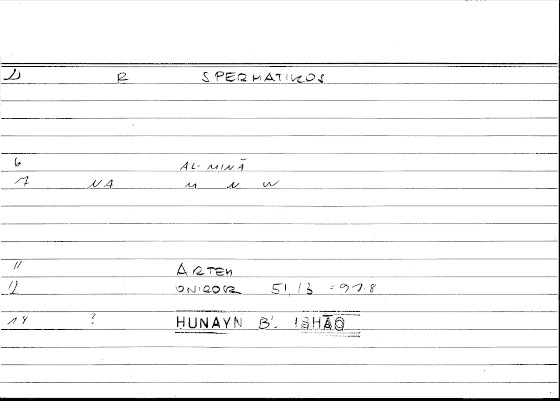 R SPERMATIKOS
6 AL-MINĀ
7 NA M N W
11 ARTEM
12 ONIROCR 51,13 = 97.8
14 ? HUNAYN B'. ISHĀQ